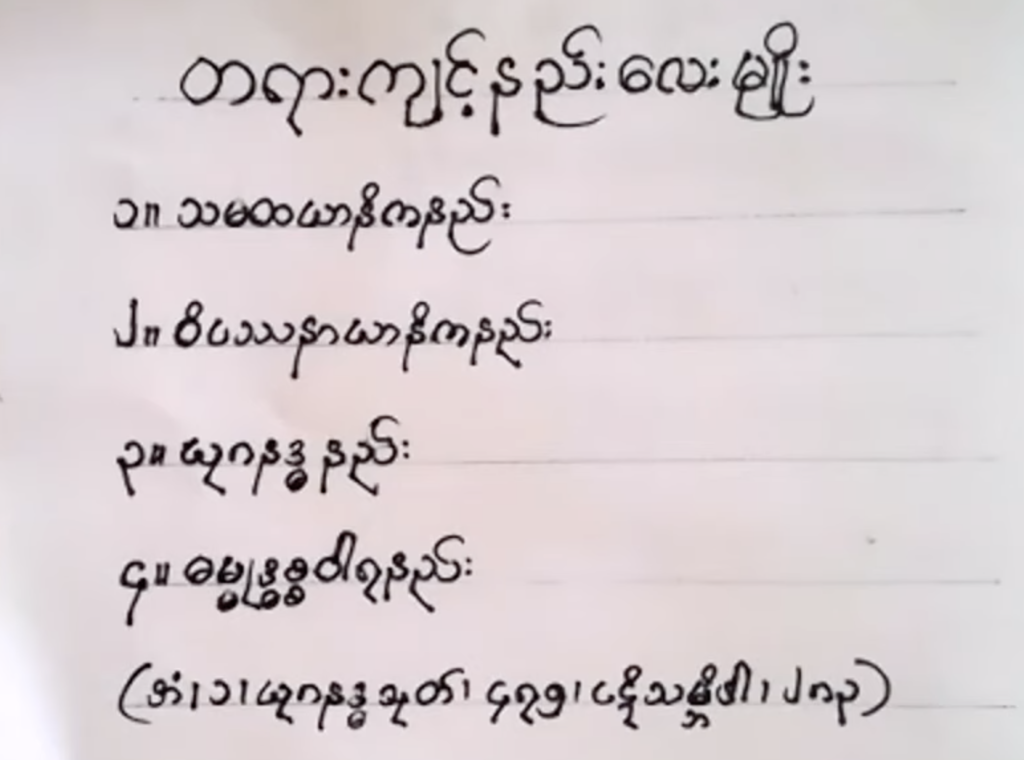 တရားကျင့်နည်းလေးမျိုး
၁။ သမထယာနိကနည်း
၂။ ဝိပဿနာယာနိကနည်း
၃။ ယုဂနဒ္ဓ နည်း
၄။ ဓမ္မုဒ္ဓစ္စဝါရနည်း
(အံ၊ ၁၊ ယုဂနဒ္ဓသုတ်၊ ၄၇၅၊ ပဋိသမ္ဘိဒါ၊ ၂၈၃)